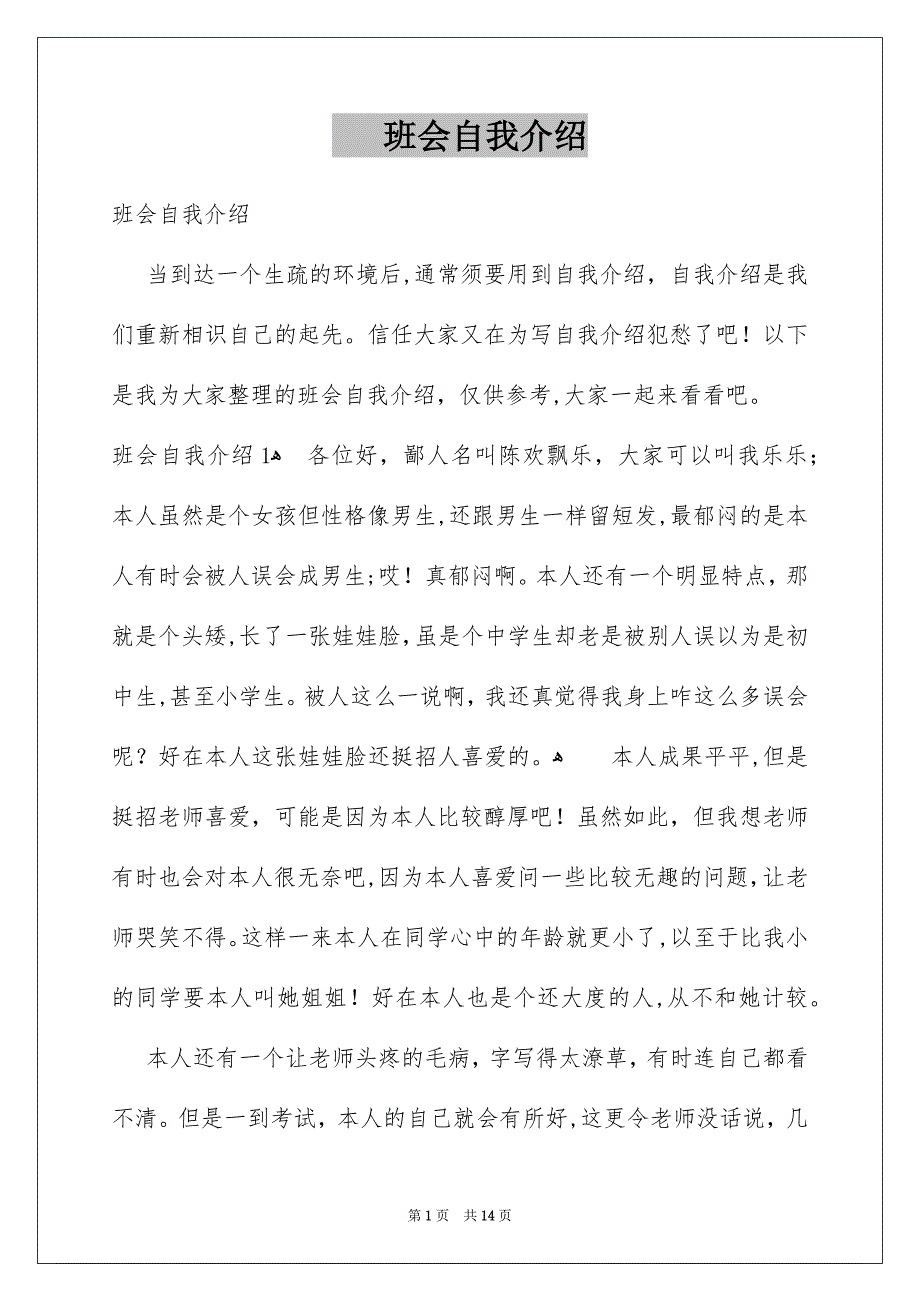 班会自我介绍
班会自我介绍
当到达一个生疏的环境后,通常须要用到自我介绍，自我介绍是我
们重新相识自己的起先。信任大家又在为写自我介绍犯愁了吧！以下
是我为大家整理的班会自我介绍，仅供参考,大家一起来看看吧。
班会自我介绍1ﻫ 各位好，鄙人名叫陈欢飘乐，大家可以叫我乐乐;
本人虽然是个女孩但性格像男生,还跟男生一样留短发,最郁闷的是本
人有时会被人误会成男生;哎！真郁闷啊。本人还有一个明显特点，那
就是个头矮,长了一张娃娃脸,虽是个中学生却老是被别人误以为是初
中生,甚至小学生。被人这么一说啊，我还真觉得我身上咋这么多误会
呢？好在本人这张娃娃脸还挺招人喜爱的。ﻫ 本人成果平平,但是
挺招老师喜爱，可能是因为本人比较醇厚吧！虽然如此，但我想老师
有时也会对本人很无奈吧,因为本人喜爱问一些比较无趣的问题,让老
师哭笑不得。这样一来本人在同学心中的年龄就更小了,以至于比我小
的同学要本人叫她姐姐！好在本人也是个还大度的人,从不和她计较。
本人还有一个让老师头疼的毛病，字写得太潦草，有时连自己都看
不清。但是一到考试，本人的自己就会有所好,这更令老师没话说，几
第1页 共14页